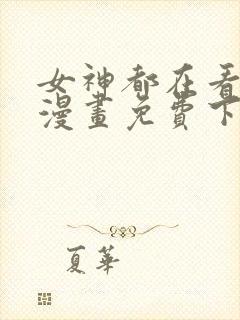 女神都在看
漫畫免費下
夏華